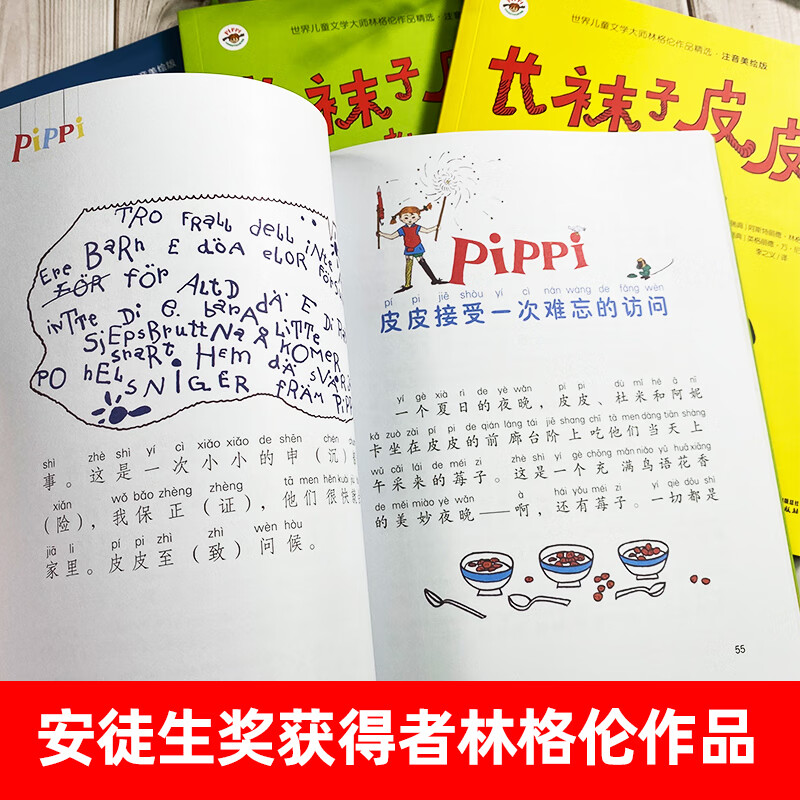 世界儿童文学大师林格伦作品精选·注音美绘版
世界儿童文学大师林格伦作品精选·注音美绘版
长袜子皮
长袜子皮皮
阿斯特丽德·林格
李之义/译
PiPPi
TRO FRALL dell inte
Ere BARN E döA elOR FÖRS
FÖR FÖR ALTD
inTTe Di e. barA dÄ E Di
SJEPSBruttNa Å LiTTe
snart HEM dÄ KOMER
PO hEL SNIGER FRÅM PiPPi
shì zhè shì yí cì xiǎo xiǎo de shēn chén
事。这是一次小小的申（沉）
xiǎn wǒ bǎo zhèng zhèng tā men hěn kuài
（险），我保正（证），他们很快
jiā li pí pi zhì zhì wèn hòu
家里。皮皮至（致）问候。
PiPPi
pí pi jiē shòu yí cì nán wàng de fǎng wèn
皮皮接受一次难忘的访问
yí gè xià rì de yè wǎn pí pi dù mǐ hé ā nī
一个夏日的夜晚，皮皮、杜米和阿妮
kǎ zuò zài pí pi de qián láng tái jiē shang chī tā men dàng tiān shàng
卡坐在皮皮的前廊台阶上吃他们当天上
wǔ cǎi lái de méi zi zhè shì yí gè chōng mǎn niǎo yǔ huā xiāng
午采来的莓子。这是一个充满鸟语花香
de měi miào yè wǎn à hái yǒu méi zi yí qiè dōu shì
的美妙夜晚——啊，还有莓子。一切都是
55
安徒生奖获得者林格伦作品